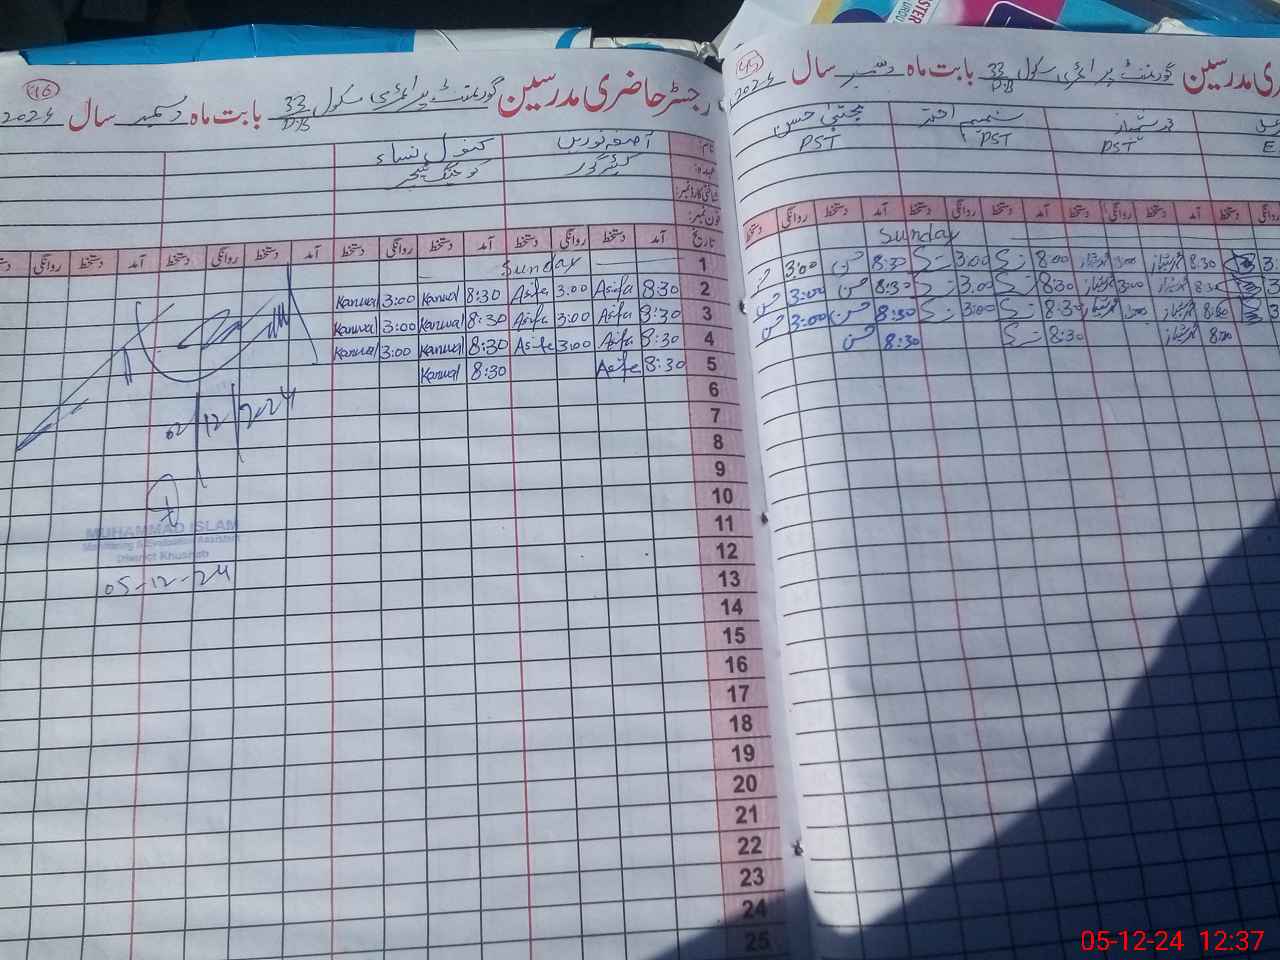 رجسٹر حاضری مدرسین گورنمنٹ پرائمری سکول 33 D.B بابت ماہ دسمبر سال 2024
46
نام: آصفہ نورین کنول نساء
عہدہ: کیئر گور کوچنگ ٹیچر
شناختی کارڈ نمبر:
فون نمبر:
تاریخ آمد دستخط روانگی دستخط آمد دستخط روانگی دستخط آمد دستخط روانگی دستخط آمد دستخط روانگی
1 Sunday
2 8:30 Asifa 3:00 Asifa 8:30 Kanwal 3:00 Kanwal
3 8:30 Asifa 3:00 Asifa 8:30 Kanwal 3:00 Kanwal
4 8:30 Asifa 3:00 Asifa 8:30 Kanwal 3:00 Kanwal
5 8:30 Asifa 8:30 Kanwal
6
7
8
9
10
11
12
13
14
15
16
17
18
19
20
21
22
23
24
25
02/12/2024
MUHAMMAD ISLAM
Monitoring & Evaluation Assistant
District Khushab
05-12-24
مدرسین گورنمنٹ پرائمری سکول 33 D.B بابت ماہ دسمبر سال 2024
شمیم اختر مجتبیٰ حسن
PST PST PST
دستخط آمد دستخط روانگی دستخط آمد دستخط روانگی دستخط آمد دستخط روانگی دستخط
Sunday
8:30 3:00 8:00 3:00 8:30 حسن 3:00 حسن
8:30 3:00 8:30 3:00 8:30 حسن 3:00 حسن
8:30 3:00 8:30 حسن 3:00 حسن
8:30 8:30 حسن
STER
URDU
05-12-24 12:37